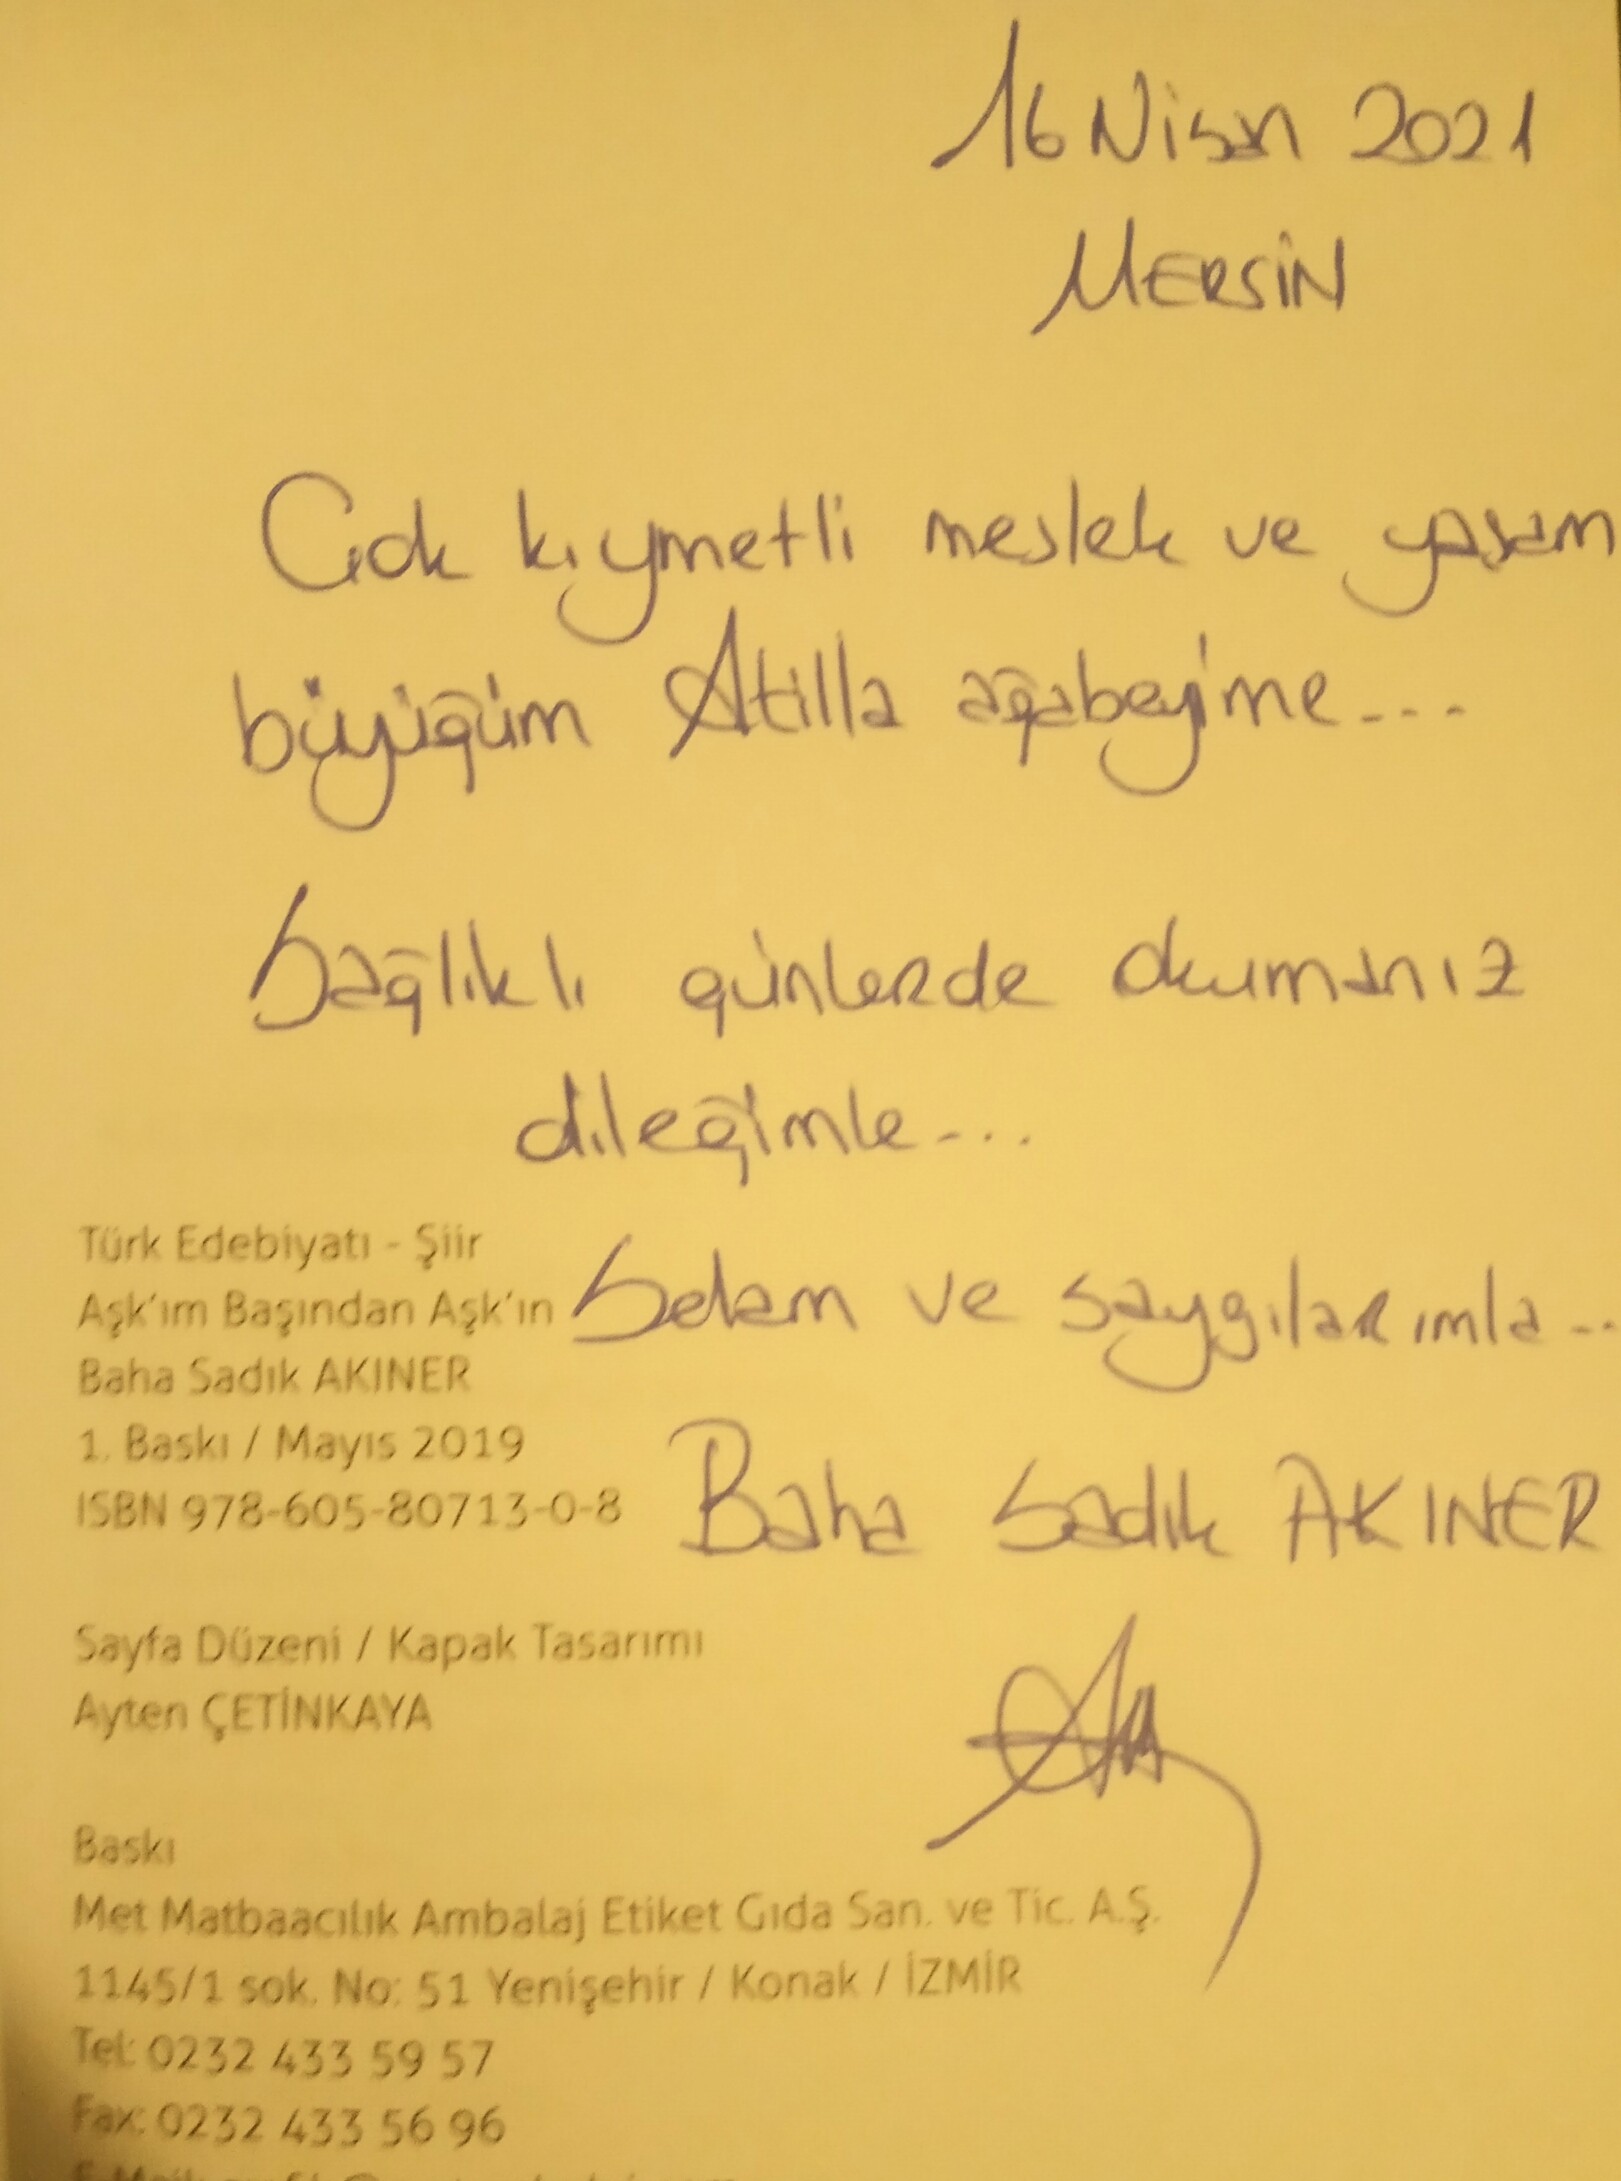 16 Nisan 2021
MERSİN
Çok kıymetli meslek ve yaşam
büyüğüm Atilla ağabeyime...
Sağlıklı günlerde okumanız
dileğimle...
Türk Edebiyatı - Şiir
Aşk'ım Başından Aşk'ın
Selam ve saygılarımla...
Baha Sadık AKINER
1. Baskı / Mayıs 2019
ISBN 978-605-80713-0-8
Baha Sadık AKINER
Sayfa Düzeni / Kapak Tasarımı
Ayten ÇETİNKAYA
Baskı
Met Matbaacılık Ambalaj Etiket Gıda San. ve Tic. A.Ş.
1145/1 sok. No: 51 Yenişehir / Konak / İZMİR
Tel: 0232 433 59 57
Fax: 0232 433 56 96